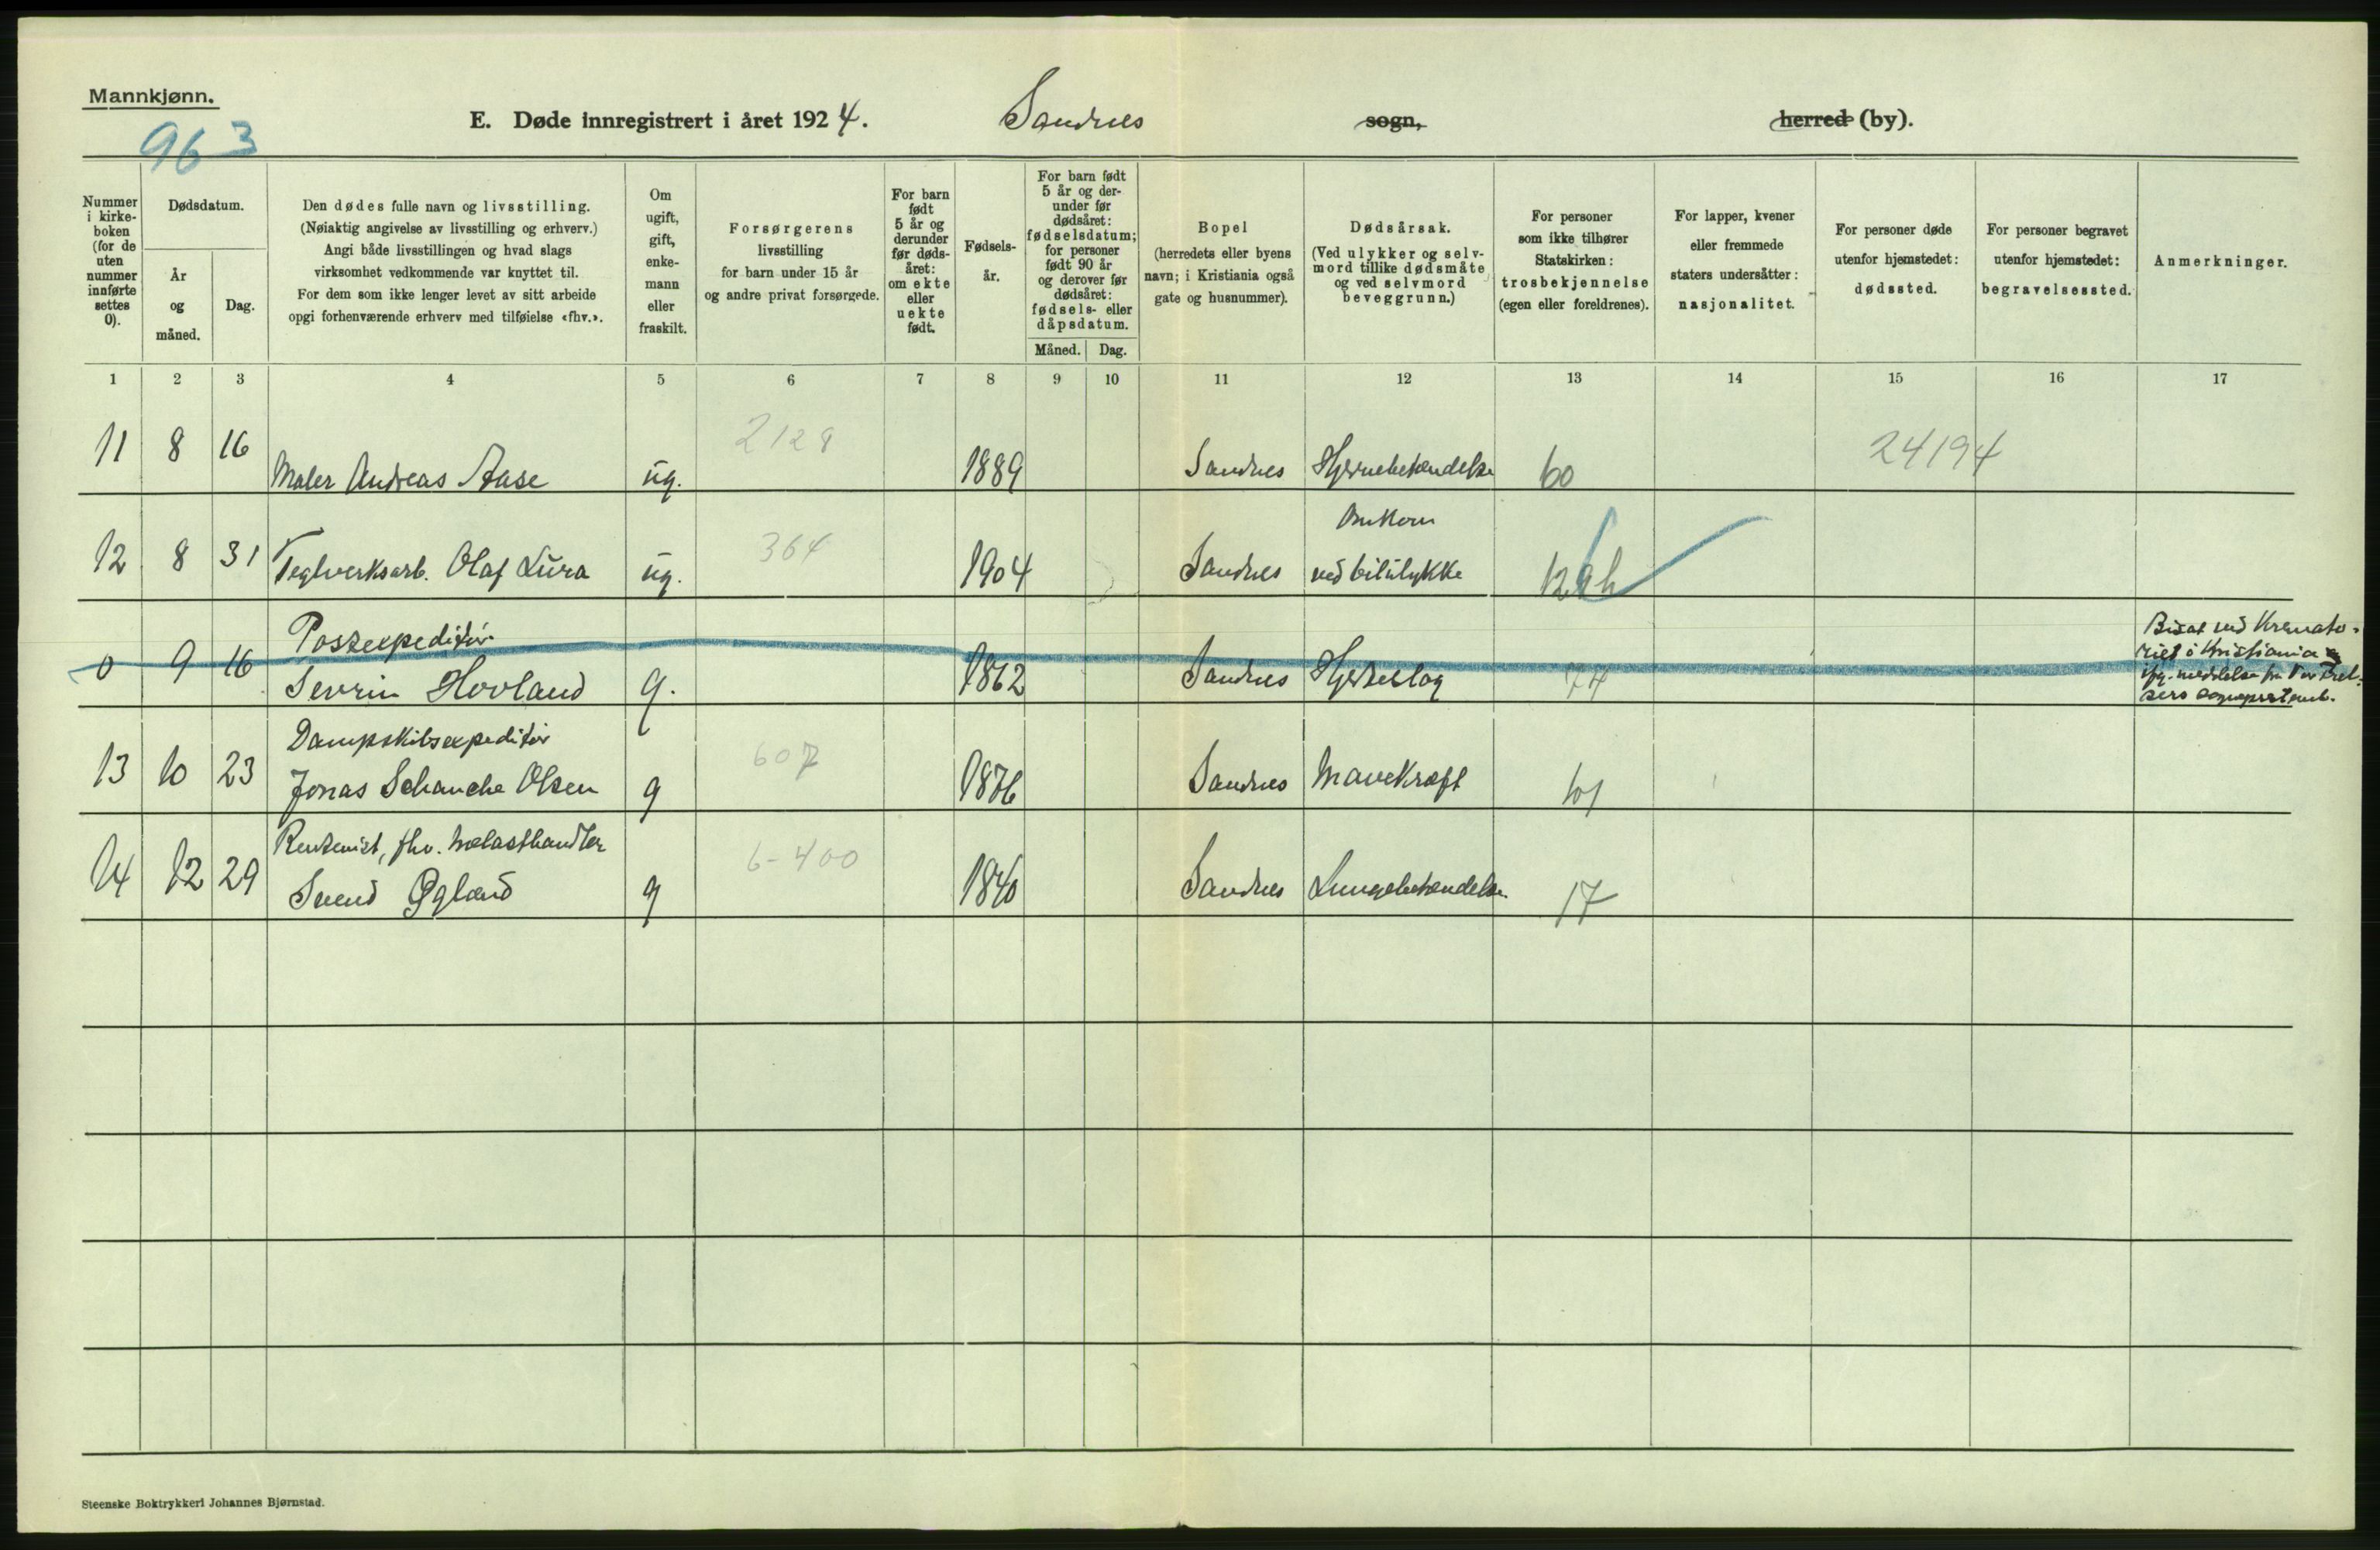 Mannkjønn.
963
E. Døde innregistrert i året 1924. Sandnes sogn, herred (by).
Nummer
i kirke-
boken
(for de
uten
nummer
innførte
settes
0).
Dødsdatum.
År
og
måned.
Dag.
Den dødes fulle navn og livsstilling.
(Nøiaktig angivelse av livsstilling og erhverv.)
Angi både livsstillingen og hvad slags
virksomhet vedkommende var knyttet til.
For dem som ikke lenger levet av sitt arbeide
opgi forhenværende erhverv med tilføielse «fhv.».
Om
ugift,
gift,
enke-
mann
eller
fraskilt.
Forsørgerens
livsstilling
for barn under 15 år
og andre privat forsørgede.
For barn
født
5 år og
derunder
før døds-
året:
om ekte
eller
uekte
født.
Fødsels-
år.
For barn født
5 år og der-
under før
dødsåret:
fødselsdatum;
for personer
født 90 år
og derover før
dødsåret:
fødsels- eller
dåpsdatum.
Måned. Dag.
Bopel
(herredets eller byens
navn; i Kristiania også
gate og husnummer).
Dødsårsak.
(Ved ulykker og selv-
mord tillike dødsmåte
og ved selvmord
beveggrunn.)
For personer
som ikke tilhører
Statskirken:
trosbekjennelse
(egen eller foreldrenes).
For lapper, kvener
eller fremmede
staters undersåtter:
nasjonalitet.
For personer døde
utenfor hjemstedet:
dødssted.
For personer begravet
utenfor hjemstedet:
begravelsessted.
Anmerkninger.
1 2 3 4 5 6 7 8 9 10 11 12 13 14 15 16 17
2128
24194
11 8 16 Maler Andreas Aase ug. 1889 Sandnes Hjernebetendelse 60
364
Omkom
12 8 31 Teglverksarb. Olaf Lura ug. 1904 Sandnes ved bilulykke
Postexpeditør
0 9 16 Sevrin Hovland g. 1862 Sandnes Hjerteslag 74
Bisat ved Kremato-
riet i Kristiania
ifg. meddelelse fra Vor Frel-
sers sogneprestemb.
Dampskibsexpeditør
607
13 10 23 Jonas Schanche Olsen g 1876 Sandnes Mavekræft 101
Rentenist, fhv.
6-400
14 12 29 Svend Øgland g 1840 Sandnes Lungebetendelse 17
Steenske Boktrykkeri Johannes Bjørnstad.